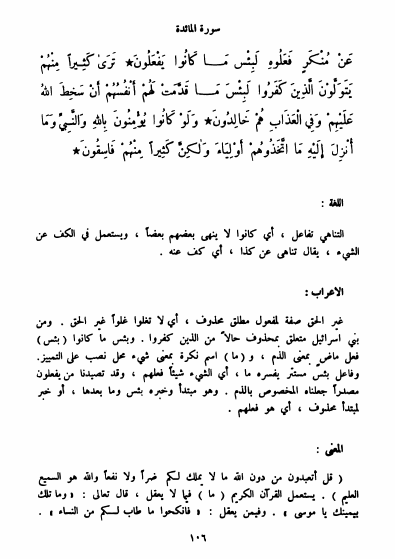 سورة المائدة
عَنْ مُنْكَرٍ فَعَلُوهُ لَبِئْسَ مَـا كَانُوا يَفْعَلُونَ★ تَرَىٰ كَثِيراً مِنْهُمْ
يَتَوَلَّوْنَ الَّذِينَ كَفَرُوا لَبِئْسَ مَـا قَدَّمَتْ لَهُمْ أَنْفُسُهُمْ أَنْ سَخِطَ اللهُ
عَلَيْهِمْ وَفِي الْعَذَابِ هُمْ خَالِدُونَ★ وَلَوْ كَانُوا يُؤْمِنُونَ بِاللهِ وَالنَّبِيِّ وَمَا
أُنْزِلَ إِلَيْهِ مَا اتَّخَذُوهُمْ أَوْلِيَاءَ وَلَـٰكِنَّ كَثِيراً مِنْهُمْ فَاسِقُونَ★
اللغة :
التناهي تفاعل ، أي كانوا لا ينهى بعضهم بعضاً ، ويستعمل في الكف عن
الشيء ، يقال تناهى عن كذا ، أي كف عنه .
الاعراب :
غير الحق صفة لمفعول مطلق محذوف ، أي لا تغلوا غلواً غير الحق . ومن
بني اسرائيل متعلق بمحذوف حالاً من الذين كفروا . وبئس ما كانوا (بئس)
فعل ماض بمعنى الذم ، و (ما) اسم نكرة بمعنى شيء محل نصب على التمييز.
وفاعل بئس مستتر يفسره ما ، أي الشيء شيئاً فعلهم ، وقد تصيدنا من يفعلون
مصدراً جعلناه المخصوص بالذم . وهو مبتدأ وخبره بئس وما بعدها ، أو خبر
لمبتدأ محذوف ، أي هو فعلهم .
المعنى :
( قل أتعبدون من دون الله ما لا يملك لكم ضراً ولا نفعاً والله هو السميع
العليم ) . يستعمل القرآن الكريم (ما) فيما لا يعقل ، قال تعالى : « وما تلك
بيمينك يا موسى » . وفيمن يعقل : « فانكحوا ما طاب لكم من النساء » .
١٠٦